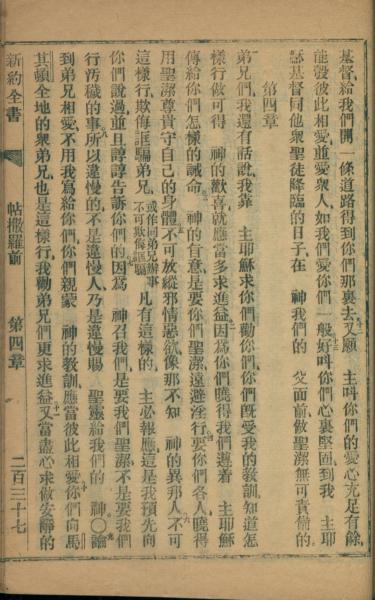 基督給我們開一條道路得到你們那裏去又願　主叫你們的愛心充足有餘
能彀彼此相愛並愛衆人如我們愛你們一般好叫你們心裏堅固到我　主耶
穌基督同他衆聖徒降臨的日子在　神我們的　父面前做聖潔無可責備的
第四章
弟兄們我還有話說我靠　主耶穌求你們勸你們你們旣受我的敎訓知道怎
樣行做可得　神的歡喜就應當多求進益因爲你們曉得我們遵着　主耶穌
傳給你們怎樣的誡命　神的旨意是要你們聖潔遠避淫行要你們各人曉得
用聖潔尊貴守自己的身體不可放縱邪情惡欲像那不知　神的異邦人不可
這樣行欺侮誆騙弟兄或作同弟兄辦事不可欺侮誆騙凡有這樣的　主必報應這是我預先向
你們說過並且諄諄告訴你們的因爲　神召我們是要我們聖潔不是要我們
行汚穢的事所以違慢的不是違慢人乃是違慢賜　聖靈給我們的　神〇論
到弟兄相愛不用我寫給你們你們親蒙　神的敎訓應當彼此相愛你們向馬
其頓全地的衆弟兄也是這樣行我勸弟兄們更求進益又當盡心求做安靜的
新約全書　帖撒羅前　第四章　二百三十七